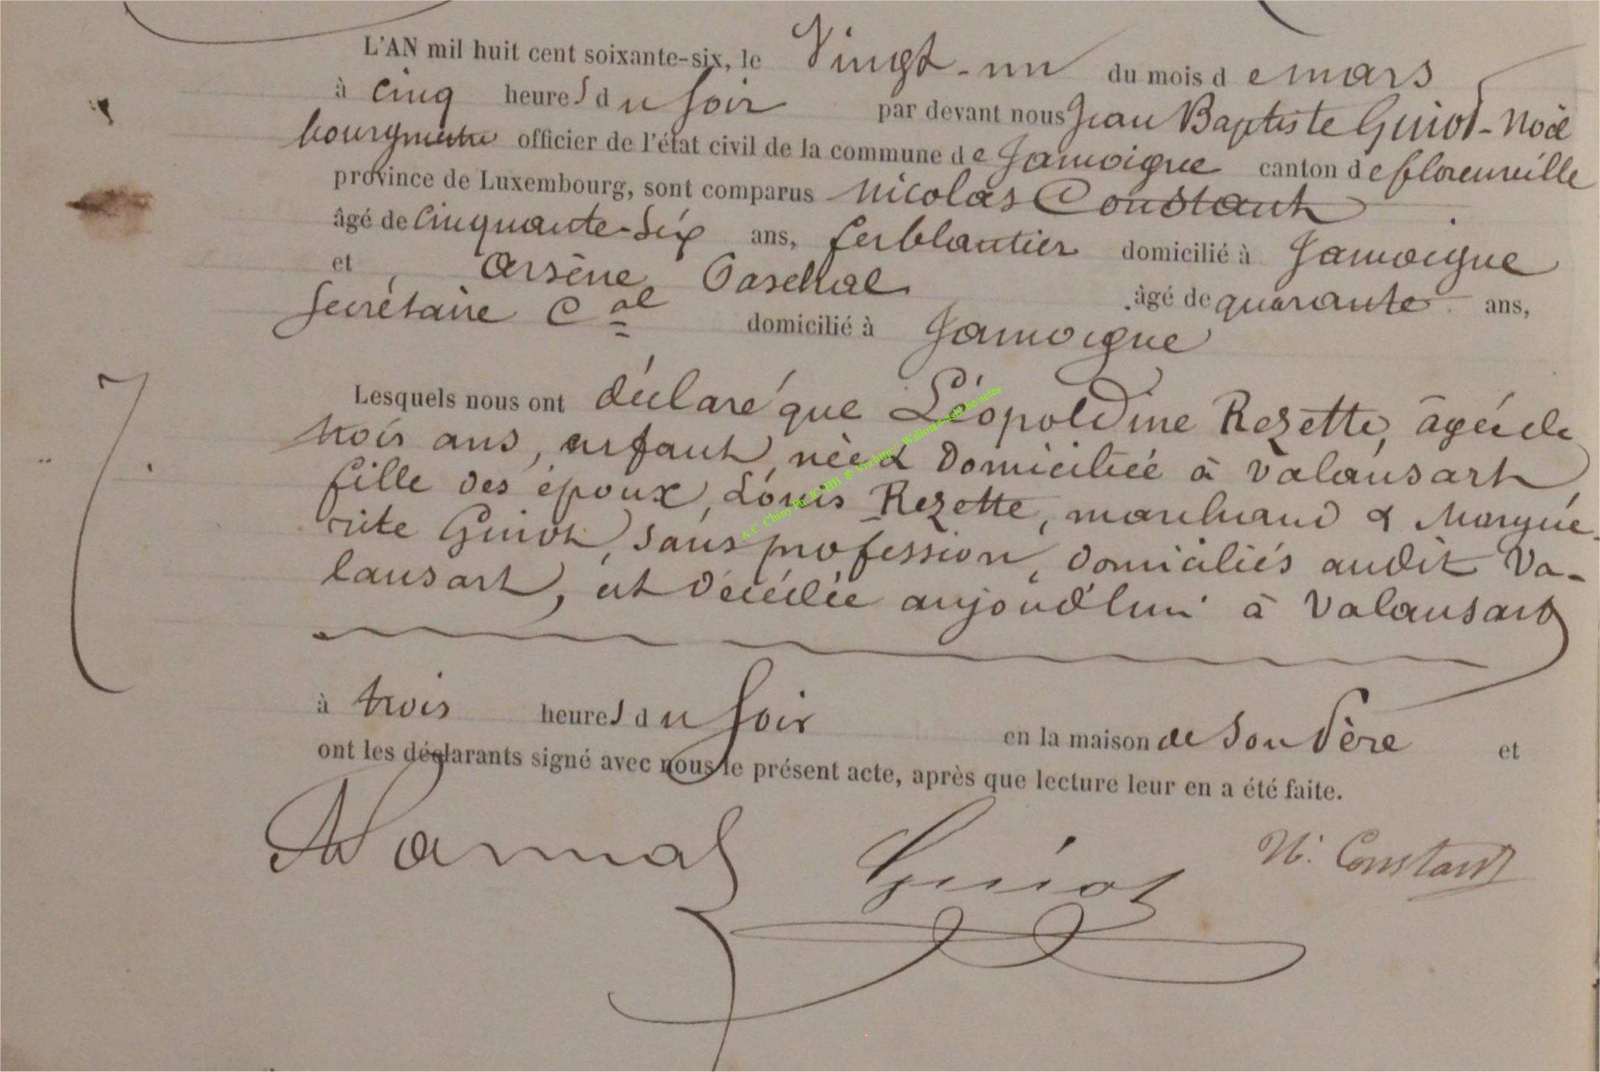 L'AN mil huit cent soixante-six, le Vingt-un du mois de mars
à cinq heures du soir par devant nous Jean Baptiste Guiot-Noël
bourgmestre officier de l'état civil de la commune de Jamoigne canton de florenville
province de Luxembourg, sont comparus Nicolas Constant
âgé de cinquante-six ans, ferblantier domicilié à Jamoigne
et Arsène Paschal âgé de quarante ans,
secrétaire Cal domicilié à Jamoigne
Lesquels nous ont déclaré que Léopoldine Rezette, âgée de
trois ans, enfant, née & domiciliée à Valansart
fille des époux, Louis Rezette, marchand & Margue-
rite Guiot, sans profession, domiciliés audit Va-
lansart, est décédée aujourd'hui à Valansart
à trois heures du soir en la maison de son Père et
ont les déclarants signé avec nous le présent acte, après que lecture leur en a été faite.
Guiot N. Constant